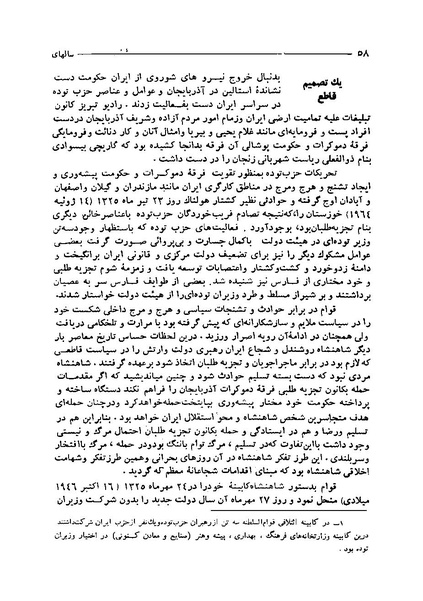 ۵۸ سالهای
یک تصمیم
قاطع
بدنبال خروج نیرو های شوروی از ایران حکومت دست
نشاندهٔ استالین در آذربایجان و عوامل و عناصر حزب توده
در سراسر ایران دست بفعالیت زدند . رادیو تبریز کانون
تبلیغات علیه تمامیت ارضی ایران وزمام امور مردم آزاده وشریف آذربایجان دردست
افراد پست و فرومایه‌ای مانند غلام یحیی و بیریا وامثال آنان و کار دنائت وفرومایگی
فرقهٔ دموکرات و حکومت پوشالی آن فرقه بدانجا کشیده بود که گاریچی بیسوادی
بنام ذوالفعلی ریاست شهربانی زنجان را در دست داشت .
تحریکات حزب‌توده بمنظور تقویت فرقهٔ دموکرات و حکومت پیشه‌وری و
ایجاد تشنج و هرج ومرج در مناطق کارگری ایران مانند مازندران و گیلان واصفهان
و آبادان اوج گرفته و حوادثی نظیر کشتار هولناك روز ۲۳ تیر ماه ۱۳۲۵ (۱۴ ژوئیه
۱۹۶۴) خوزستان را،که‌نتیجه تصادم فریب‌خوردگان حزب‌توده باعناصرخائن دیگری
بنام تجزیه‌طلبان‌بود، بوجودآورد . فعالیت‌های حزب توده که باستظهار وجودسه‌تن
وزیر توده‌ای در هیئت دولت باکمال جسارت و بی‌پروائی صورت گرفت بعضی
عوامل مشکوك دیگر را نیز برای تضعیف دولت مرکزی و قانونی ایران برانگیخت و
دامنهٔ زدوخورد و کشت‌وکشتار واعتصابات توسعه یافت و زمزمهٔ شوم تجزیه طلبی
و خود مختاری از فارس نیز شنیده شد. بعضی از طوایف فارس سر به عصیان
برداشتند و بر شیراز مسلط و طرد وزیران توده‌ای‌را از هیئت دولت خواستار شدند.
قوام در برابر حوادث و تشنجات سیاسی و هرج و مرج داخلی شکست خود
را در سیاست ملایم و سازشکارانه‌ای که پیش گرفته بود با مرارت و تلخکامی دریافت
ولی همچنان در ادامهٔ‌آن رویه اصرار ورزید. درین لحظات حساس تاریخ معاصر بار
دیگر شاهنشاه روشندل و شجاع ایران رهبری دولت وارتش را در سیاست قاطعی
که‌لازم بود در برابر ماجراجویان و تجزیه طلبان اتخاذ شود برعهده گرفتند. شاهنشاه
مردی نبود که دست بسته تسلیم حوادث شود و چنین میاندشید که اگر مقدمات
حمله بکانون تجزیه طلبی فرقهٔ دموکرات آذربایجان را فراهم نکند دستگاه ساخته و
پرداخته حکومت خود مختار پیشه‌وری بپایتخت‌حمله‌خواهدکرد ودرچنان حمله‌ای
هدف متجاسرین شخص شاهنشاه و محو استقلال ایران خواهد بود. بنابراین هم در
تسلیم ورضا و هم در ایستادگی و حمله بکانون تجزیه طلبان احتمال مرگ و نیستی
وجود داشت بااین‌تفاوت که‌در تسلیم ، مرگ توام باننگ بودودر حمله ، مرگ باافتخار
وسربلندی . این طرز تفکر شاهنشاه در آن روزهای بحرانی وهمین طرزتفکر وعظمت
اخلاقی شاهنشاه بود که مبنای اقدامات شجاعانهٔ معظم‌له گردید .
قوام بدستور شاهنشاه‌کابینهٔ خودرا در۲۴ مهرماه ۱۳۲۵ (۱۶ اکتبر ۱۹۴۶
میلادی) منحل نمود و روز ۲۷ مهرماه آن سال دولت جدید را بدون شرکت وزیران
۱ــ در کابینه ائتلافی قوام‌السلطنه سه تن ازرهبران حزب‌توده‌ویك‌نفر ازحزب ایران شرکت‌داشتند
درین کابینه وزارتخانه‌های فرهنگ ، بهداری ، پیشه وهنر (صنایع و معادن کنونی) در اختیار وزیران
توده بود .